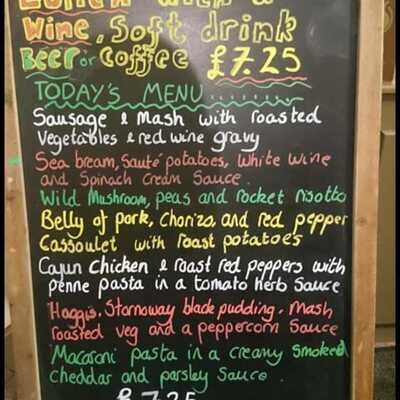 Lunch with a
Wine, Soft drink
Beer or Coffee £7.25
TODAY'S MENU........
Sausage & Mash with roasted
Vegetables & red wine gravy
Sea bream, Sauté potatoes, White Wine
and Spinach Cream Sauce.
Wild Mushroom, peas and rocket risotto
Belly of pork, Chorizo, and red pepper
Cassoulet with roast potatoes
Cajun Chicken & roast red peppers with
penne pasta in a tomato herb Sauce
Haggis, Stornoway black pudding, Mash
roasted veg and a peppercorn Sauce
Macaroni pasta in a creamy Smoked
Cheddar and parsley Sauce.
£7.25